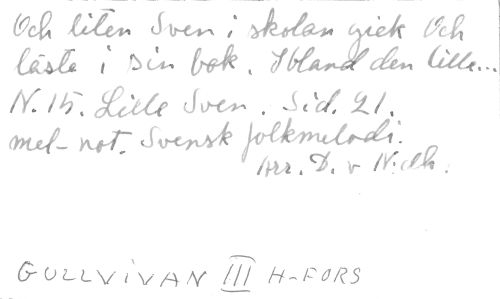 Och liten Sven i skolan gick Och
läste i sin bok. Ibland den lille...
N. 15. Lille Sven. Sid. 21.
mel-not. Svensk folkmelodi.
Arr. D. v
GULLVIVAN III H-FORS